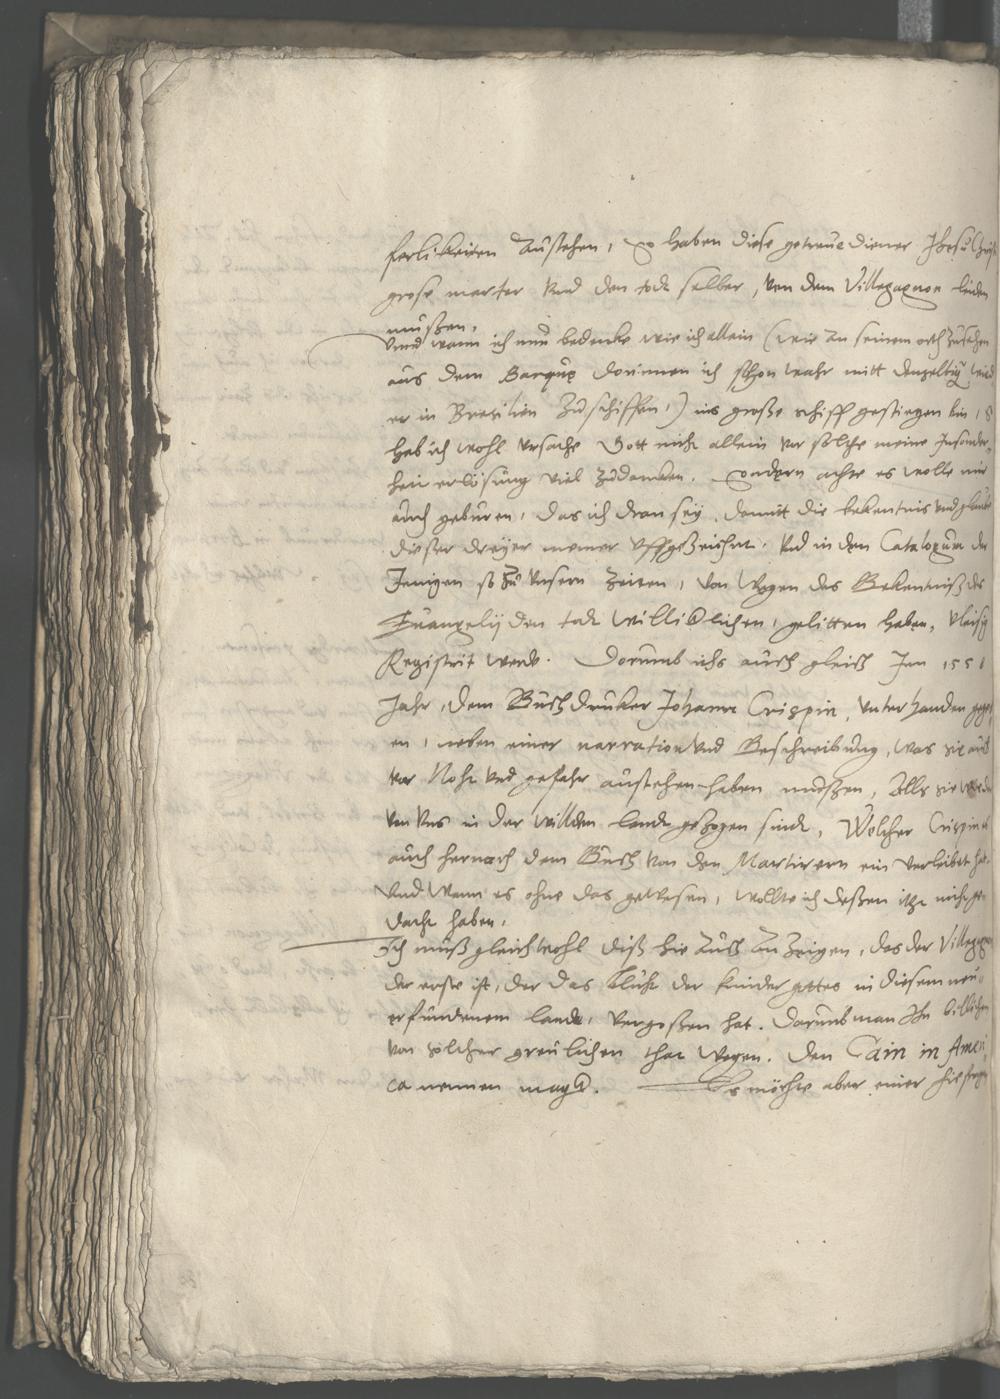 ferlikeiten außstehen, so haben diese getreue diener Jhesu Christ
grose marter vnd den todt selber, von dem Villegagnon leiden
mußen,
Vnnd wann ich nun bedenke wie ich allein (wie an seinem orth zusehen
aus dem Barque dorinnen ich schon wahr mitt denselbig wied
er in Bresilien zuschiffen,) ins große schiff gestiegen bin, so
hab ich wohl vrsache Gott nicht allein vor solche meine Insonder
heit erlösung viel zudancken. sondern achte es wolle mir
auch geburen, das ich dran sey, damitt die bekentnis vnd glaube
dießer dreyer menner vffgezeichnet. vnd in den Catalogum der
Jenigen so zu vnsern zeiten, von wegen des Bekentniß des
Euangelij den todt williclichen, gelitten haben, vleisig
Registrirt werde. Dorumb ichs auch gleich Im 1558
Jahr, dem Buchdrucker Johann Crispin, vnter handen geg
en, neben einer narration vnd Beschreibung, was sie auch
vor Noht vnd gefahr außstehen haben mußen, Alls sie wied
von vns in der willden landt gezogen sindt, Welcher Crispin es
auch hernach dem Buch von den Martirern ein verleibet hat.
Vnd wann es ohne das gewesen, wollte ich deßen itzt nicht ge
dacht haben,
Ich muß gleichwohl diß hie auch anzeigen, das der Villegagn
der erste ist, der das Bluht der kinder gottes in diesem neu
erfundenem lande, vergoßen hat. darumb man Ihn billichen
von solcher greulichen that wegen. den Cain in Ameri
ca nennen magk. Es möchte aber einer hie fragen